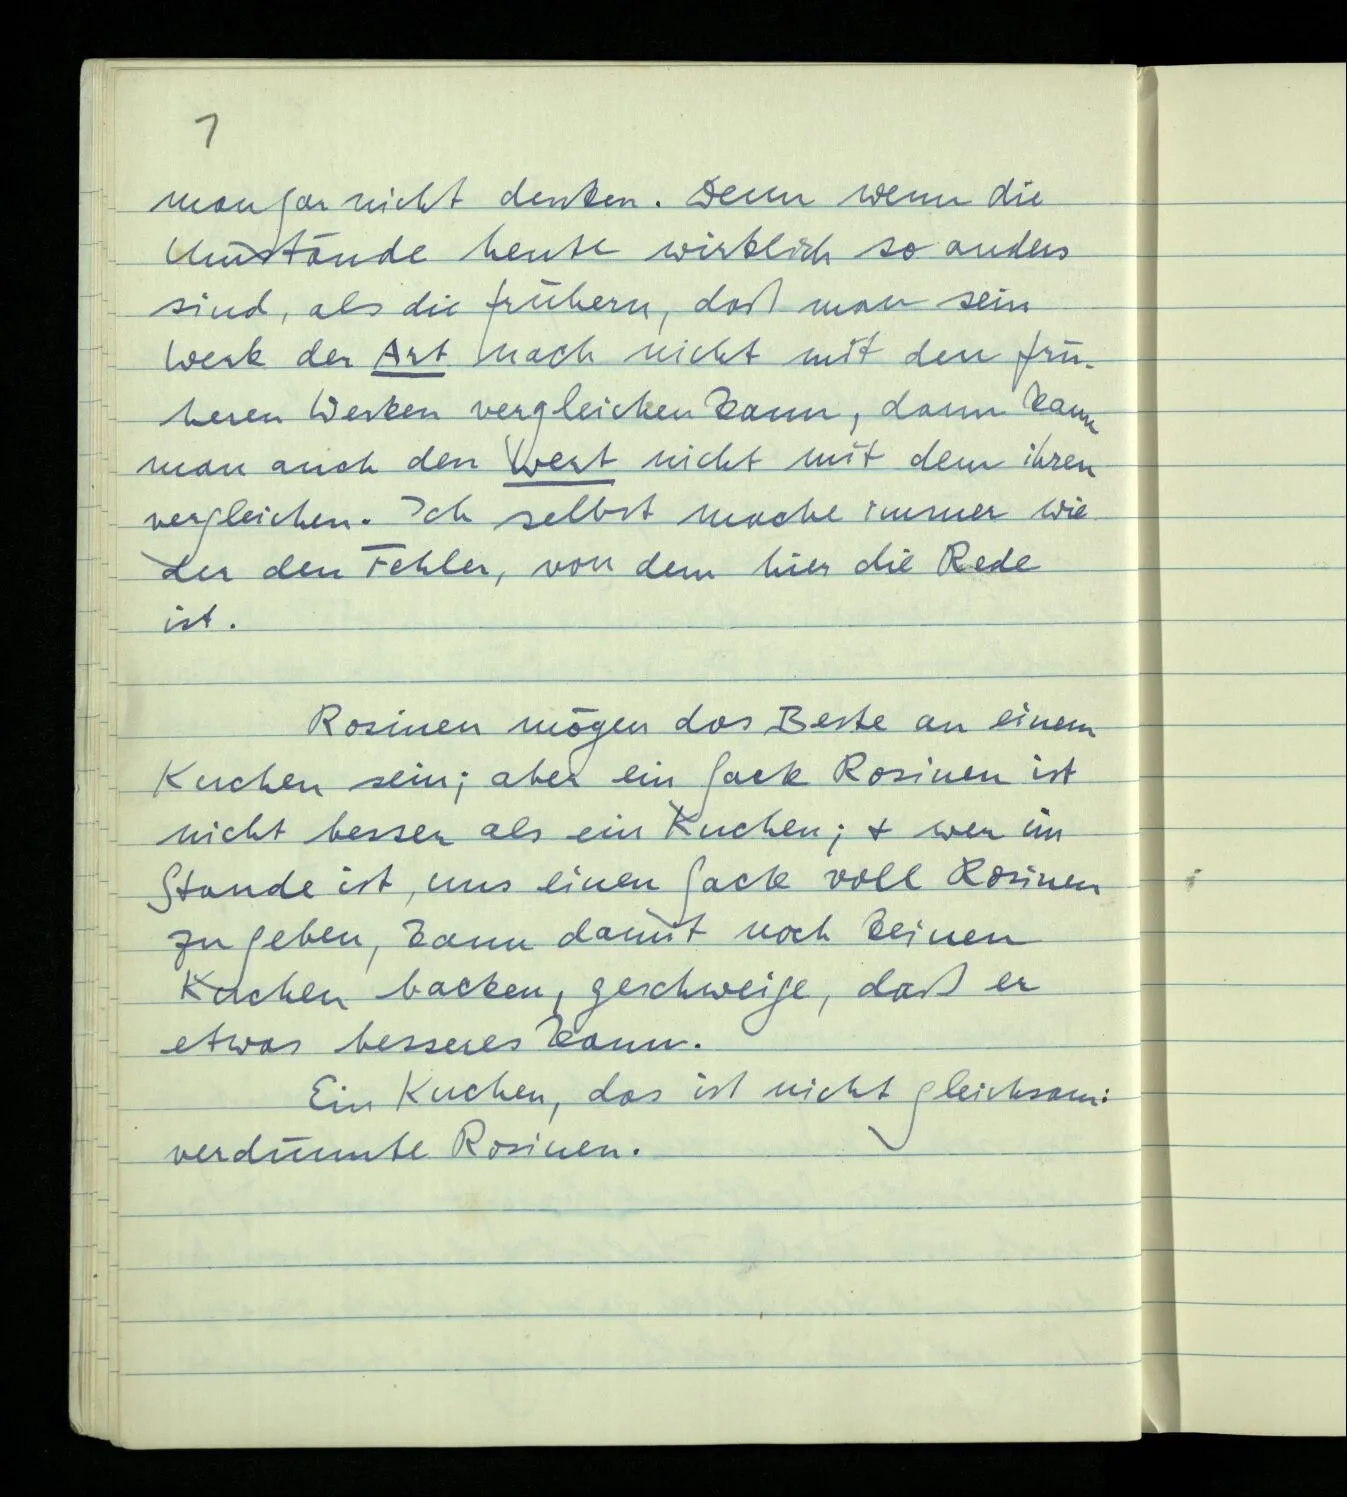 7
man gar nicht denken. Denn wenn die
Umstände heute wirklich so anders
sind, als die frühern, daß man sein
Werk der Art nach nicht mit den frü-
heren Werken vergleichen kann, dann kann
man auch den Wert nicht mit dem ihren
vergleichen. Ich selbst mache immer wie
der den Fehler, von dem hier die Rede
ist.
Rosinen mögen das Beste an einem
Kuchen sein; aber ein Sack Rosinen ist
nicht besser als ein Kuchen; & wer im
Stande ist, uns einen Sack voll Rosinen
zu geben, kann damit noch keinen
Kuchen backen, geschweige, daß er
etwas besseres kann.
Ein Kuchen, das ist nicht gleichsam:
verdünnte Rosinen.